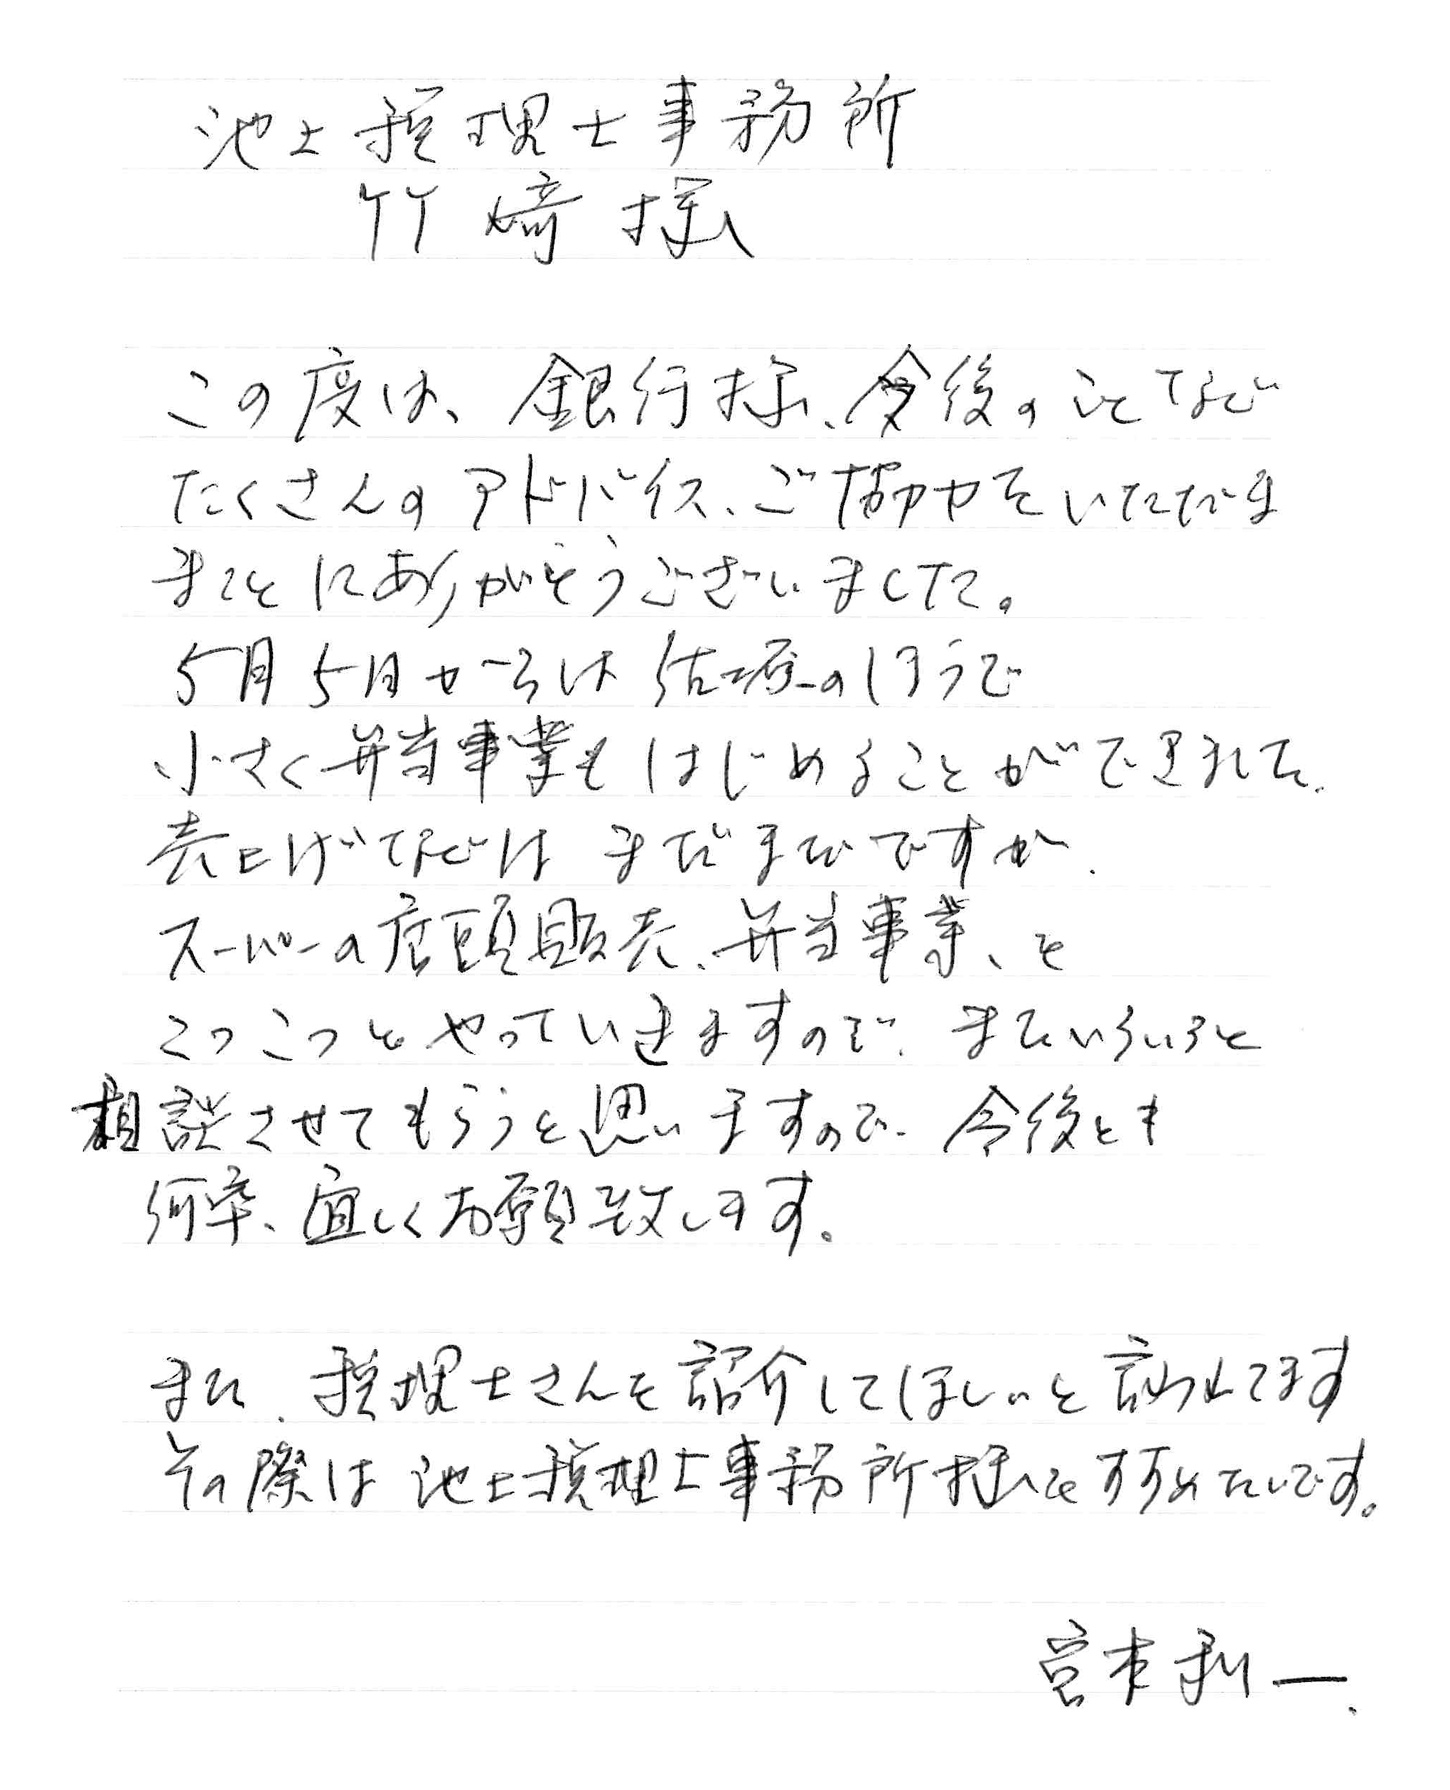 池上税理士事務所
竹﨑様
この度は、銀行様、今後のことなど
たくさんのアドバイス、ご協力をいただき
まことにありがとうございました。
5月5日からは佐原のほうで
小さく弁当事業もはじめることができました。
売上げなどはまだまだですが、
スーパーの店頭販売、弁当事業、を
こつこつとやっていきますので、またいろいろと
相談させてもらうと思いますので、今後とも
何卒、宜しくお願い致します。
また、税理士さんを紹介してほしいと言われてます
その際は池上税理士事務所様をすすめたいです。
宮本利一